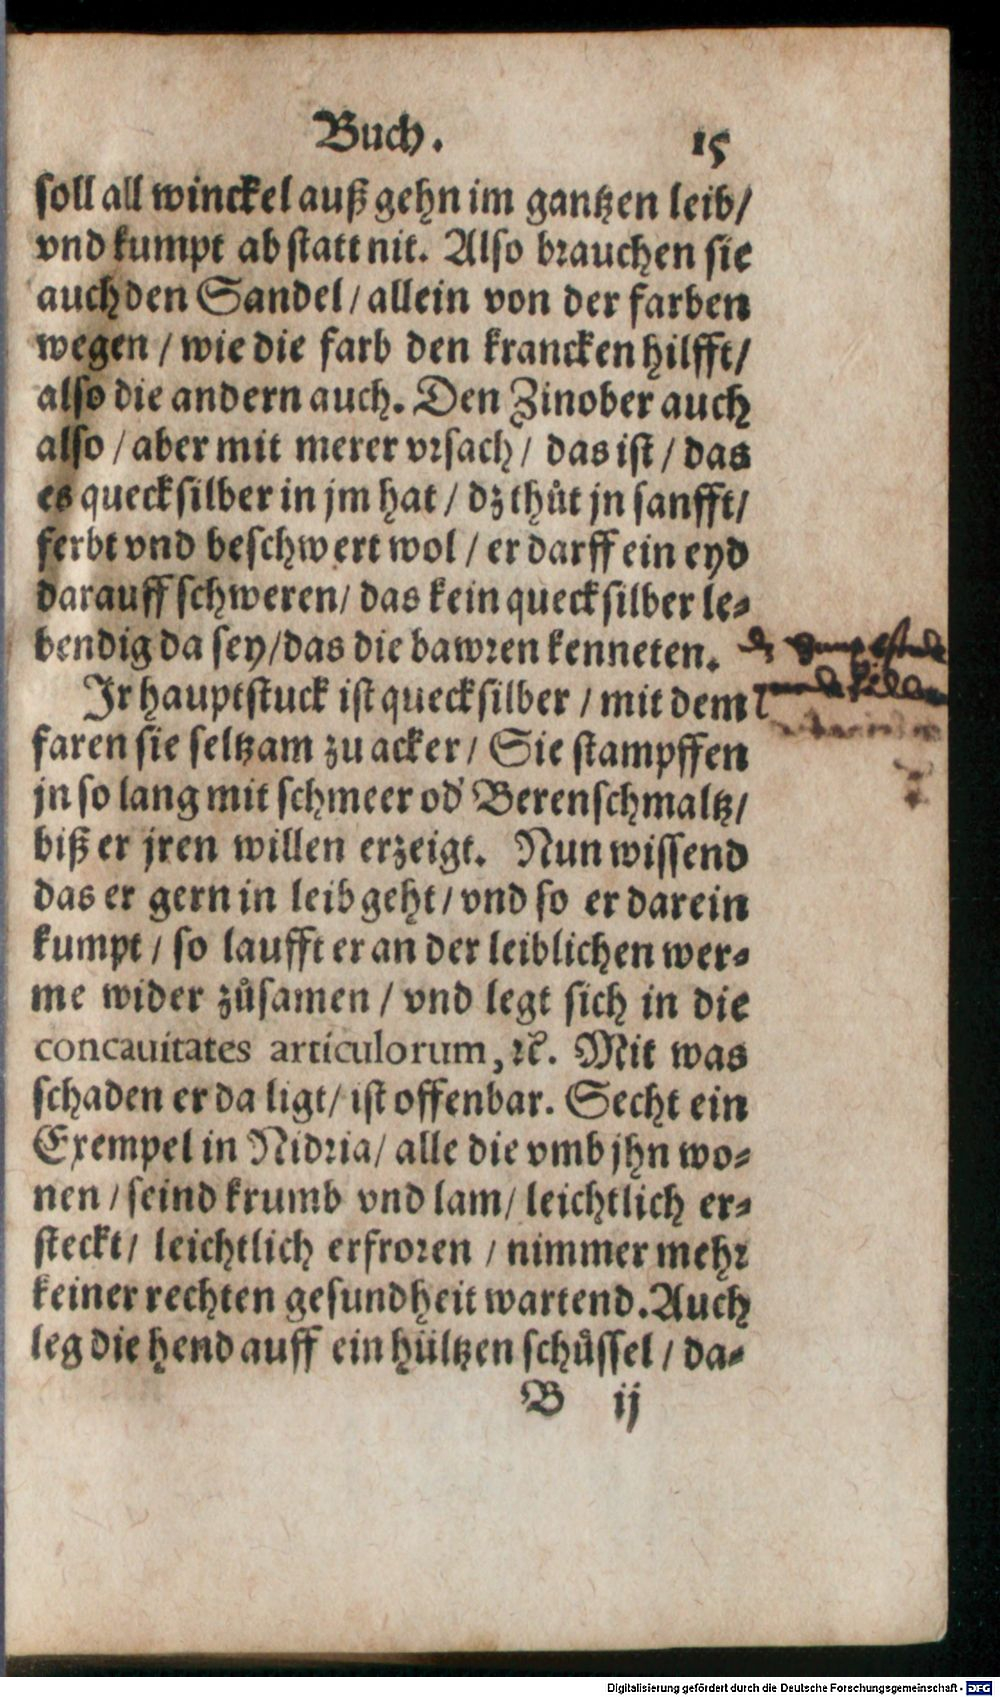 Buch. 15
soll all winckel auß gehn im gantzen leib/
vnd kumpt ab statt nit. Also brauchen sie
auch den Sandel / allein von der farben
wegen / wie die farb den krancken hilfft/
also die andern auch. Den Zinober auch
also / aber mit merer vrsach / das ist / das
es quecksilber in jm hat / dz thůt jn sanfft/
ferbt vnd beschwert wol / er darff ein eyd
darauff schweren / das kein quecksilber le⸗
bendig da sey/das die bawren kenneten.
Jr hauptstuck ist quecksilber / mit dem
faren sie seltzam zu acker / Sie stampffen
jn so lang mit schmeer od' Berenschmaltz/
biß er jren willen erzeigt. Nun wissend
das er gern in leib geht / vnd so er darein
kumpt / so laufft er an der leiblichen wer⸗
me wider zůsamen / vnd legt sich in die
concauitates articulorum, ꝛc̃. Mit was
schaden er da ligt/ ist offenbar. Secht ein
Exempel in Nidria/ alle die vmb jhn wo⸗
nen / seind krumb vnd lam/ leichtlich er⸗
steckt/ leichtlich erfroren / nimmer mehr
keiner rechten gesundheit wartend. Auch
leg die hend auff ein hültzen schůssel / da⸗
B ij
Digitalisierung gefördert durch die Deutsche Forschungsgemeinschaft - DFG